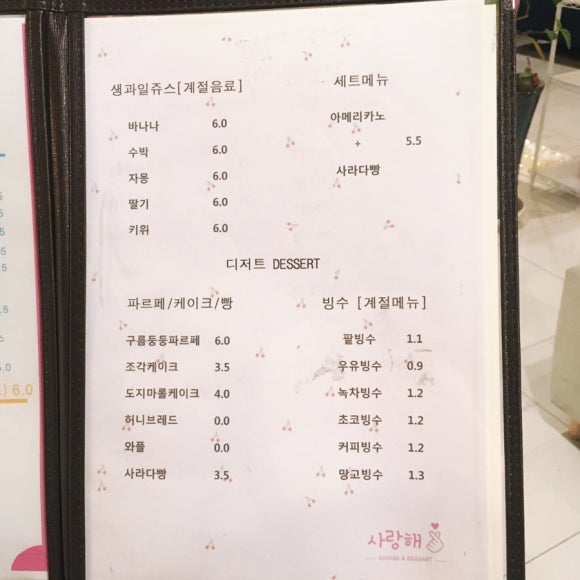 생과일쥬스[계절음료]
바나나 6.0
수박 6.0
자몽 6.0
딸기 6.0
키위 6.0
세트메뉴
아메리카노
+ 5.5
사라다빵
디저트 DESSERT
파르페/케이크/빵
구름둥둥파르페 6.0
조각케이크 3.5
도지마롤케이크 4.0
허니브레드 0.0
와플 0.0
사라다빵 3.5
빙수 [계절메뉴]
팥빙수 1.1
우유빙수 0.9
녹차빙수 1.2
초코빙수 1.2
커피빙수 1.2
망고빙수 1.3
사랑해
COFFEE & DESSERT
5
5
5
5.0
) 6.0